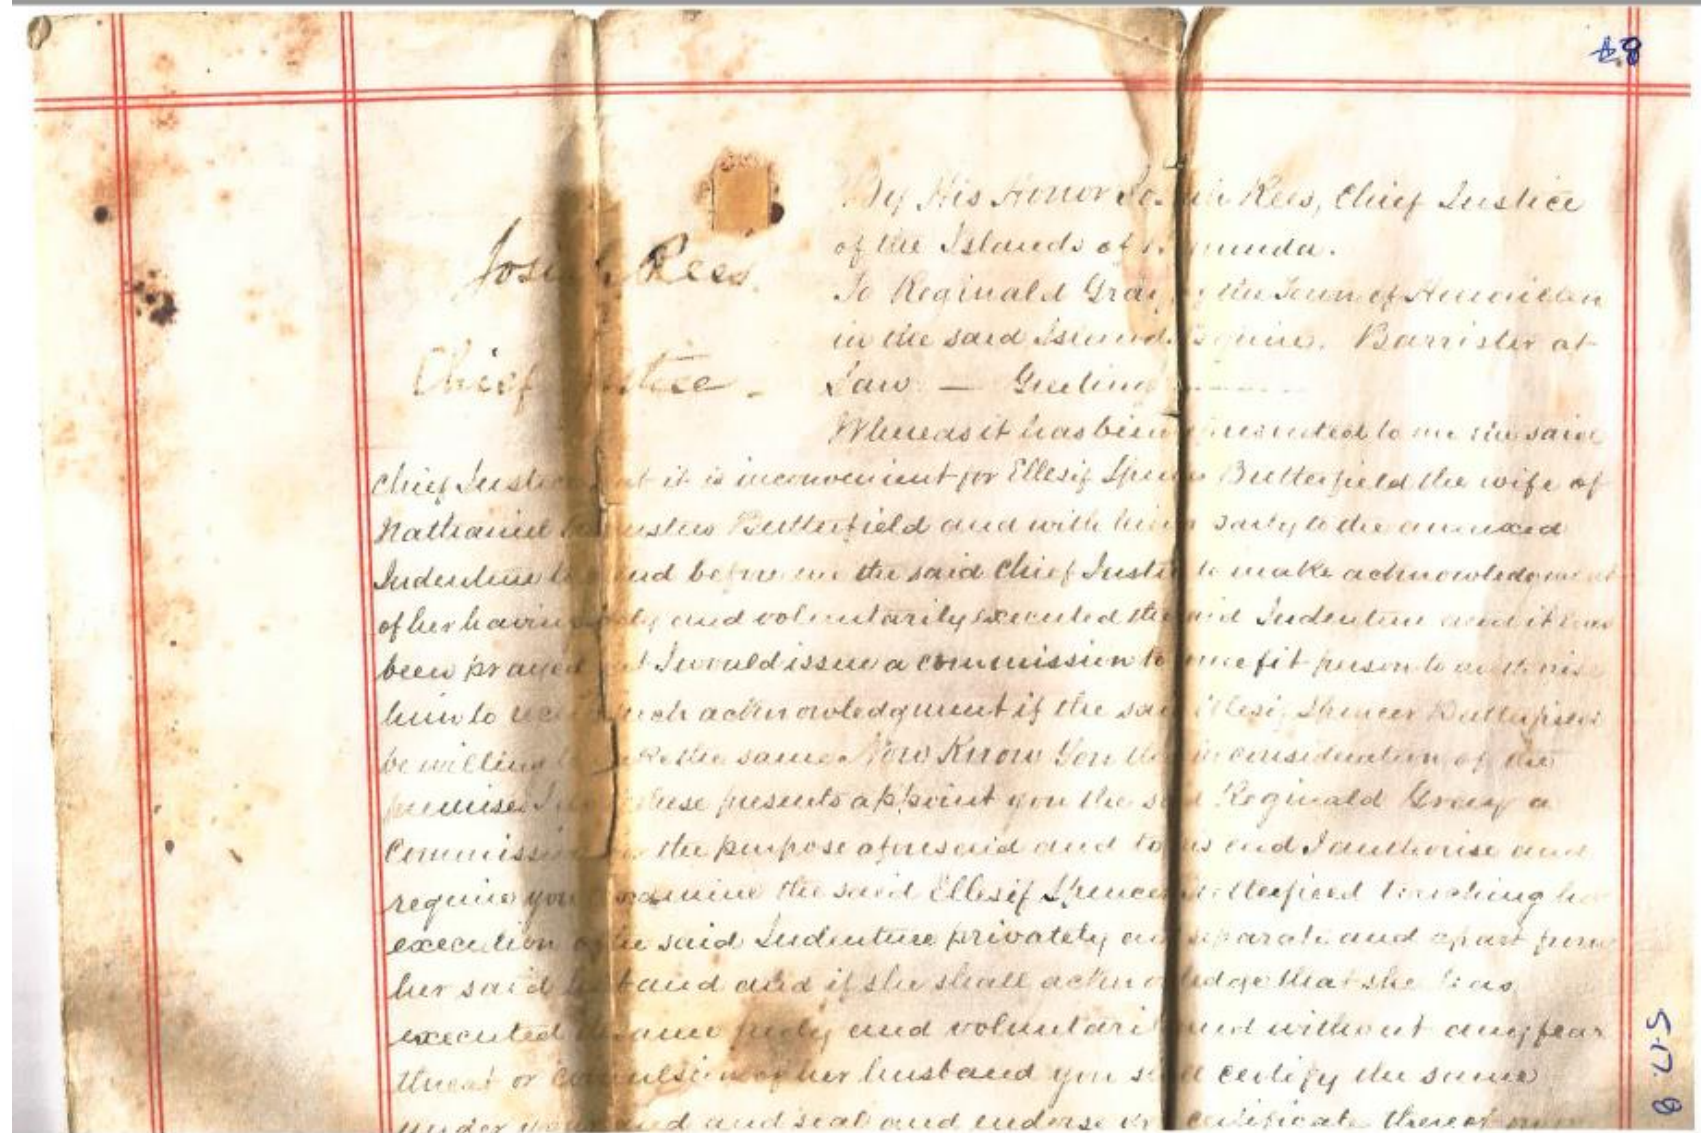 By His Honor Josiah Rees, Chief Justice
of the Islands of Bermuda.
Josiah Rees
To Reginald Gray of the Town of Hamilton
in the said Islands Esquire. Barrister at
Chief Justice
Law — Greeting
Whereas it has been represented to me the said
Chief Justice that it is inconvenient for Ellesif Spencer Butterfield the wife of
Nathaniel Butterfield and with him party to the annexed
Indenture to attend before me the said Chief Justice to make acknowledgment
of her having freely and voluntarily executed the said Indenture and it has
been prayed that I would issue a commission to some fit person to authorise
him to receive such acknowledgment if the said Ellesif Spencer Butterfield
be willing to make the same Now Know You that in consideration of the
premises I do by these presents appoint you the said Reginald Gray a
Commissioner for the purpose aforesaid and to this end I authorise and
require you to examine the said Ellesif Spencer Butterfield touching her
execution of the said Indenture privately and separate and apart from
her said husband and if she shall acknowledge that she has
executed the same freely and voluntarily and without any fear
threat or compulsion of her husband you shall certify the same
under your hand and seal and endorse certificate thereof